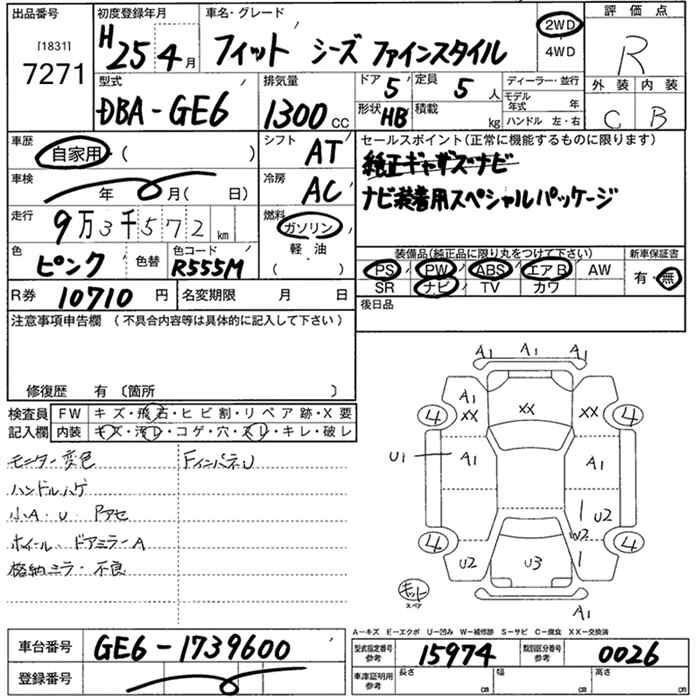 出品番号
[1831]
7271
初度登録年月
H 25 4 月
車名・グレード
フィット シーズ ファインスタイル
2WD
4WD
評価点
R
型式
DBA-GE6
排気量
1300 CC
ドア 5
形状 HB
定員 5 人
積載 kg
ディーラー・並行
モデル年式 年
ハンドル 左・右
外装 内装
C B
車歴
自家用・( )
シフト AT
車検
年 月( 日)
冷房 AC
走行
9万3千572km
燃料
ガソリン
軽・油
・( )
色
ピンク
色替
色コード
R555M
R券 10710 円
名変期限 月 日
セールスポイント(正常に機能するものに限ります)
純正ギャザズナビ
ナビ装着用スペシャルパッケージ
装備品(純正品に限り丸をつけて下さい)
新車保証書
PS PW ABS エアB AW
SR ナビ TV カワ
有・無
後日品
注意事項申告欄(不具合内容等は具体的に記入して下さい)
修復歴 有〔箇所 〕
検査員記入欄
FW キズ・飛石・ヒビ割・リペア跡・X要
内装 キズ・汚レ・コゲ・穴・スレ・キレ・破レ
モニター変色
FインパネU
ハンドルハゲ
小A・U・Pアセ
ホイール・ドアミラーA
格納ミラー不良
A1 A1 A1
A1
XX XX XX
4 4
U1
A1 A1
U2
W2
4 4
U2 U3
キット
スペア
A1
A-キズ E-エクボ U-凹み W-補修跡 S-サビ C-腐食 XX-交換済
車台番号 GE6-1739600
登録番号
型式指定番号
参考
15974
類別区分番号
参考
0026
車庫証明用
参考
長さ cm
幅 cm
高さ cm